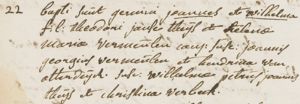 22 bapti sunt gemini joannes et wilhelma
fil. theodori janse thijs et helena
maria vermeulen conj. susc. joannis
georgius vermeulen et hendrina van
susc. wilhelma petrus joannis
thijs et christina verbeek.